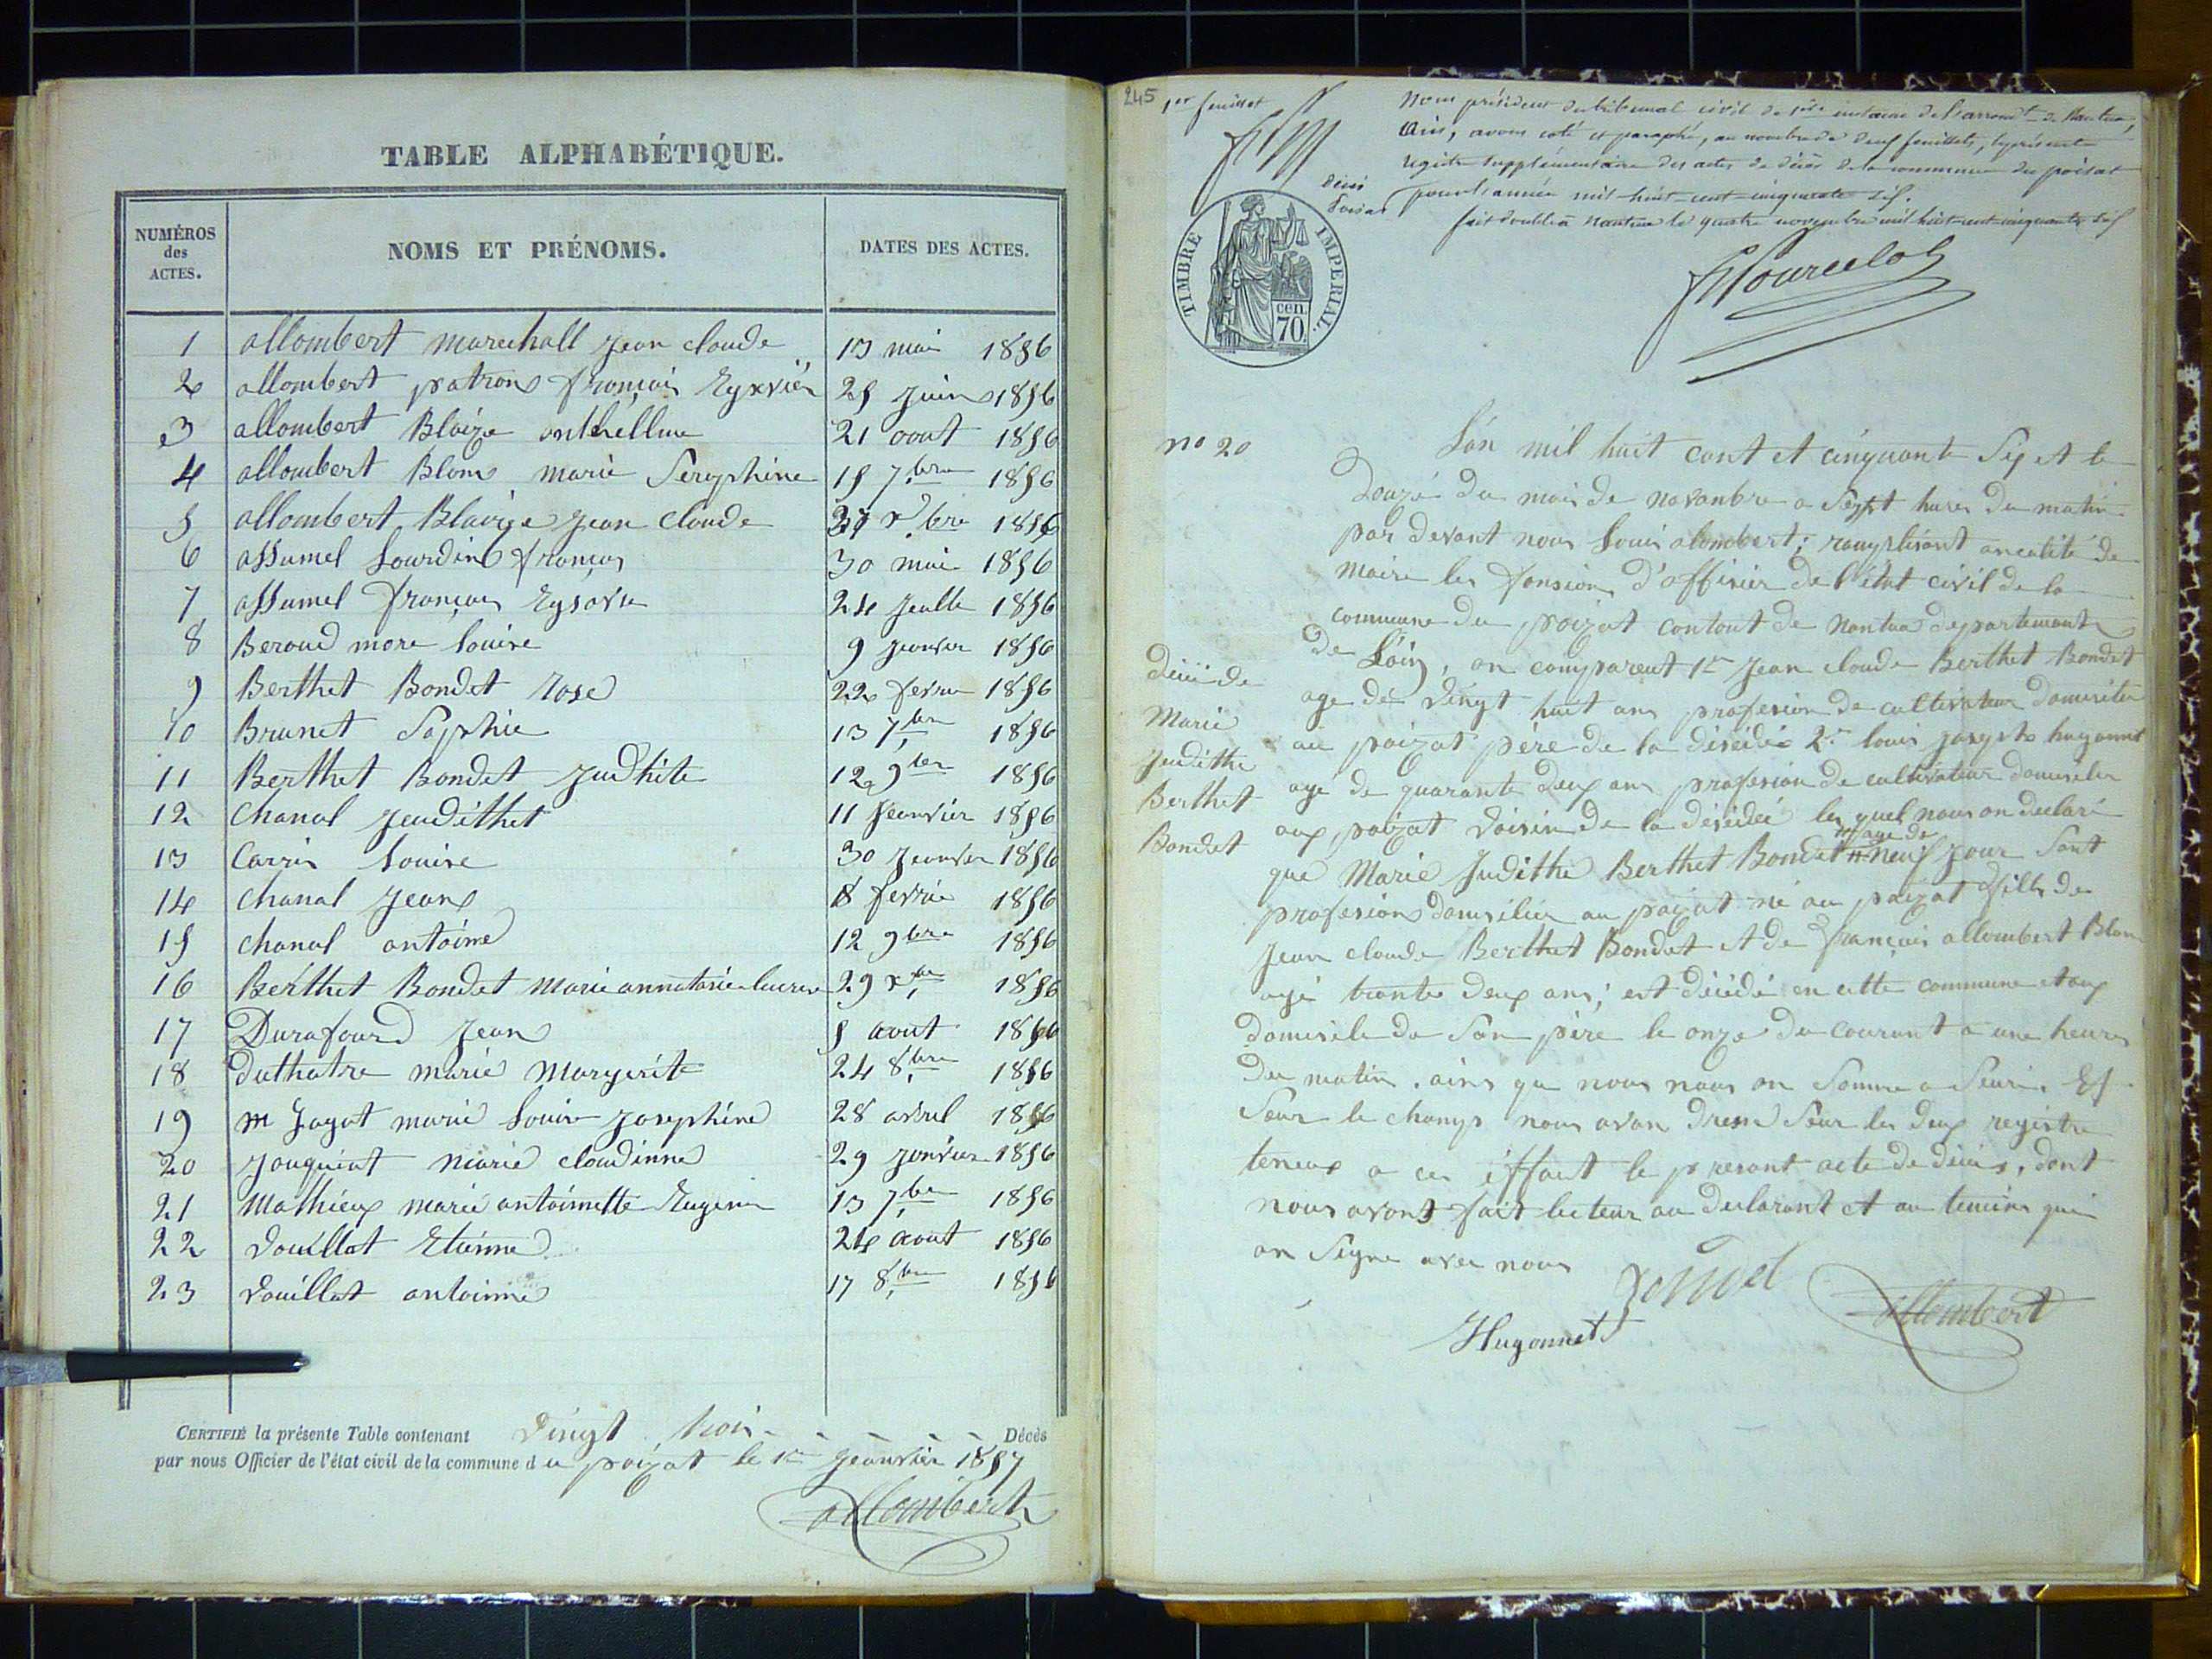 TABLE ALPHABÉTIQUE.
NUMÉROS des ACTES. NOMS ET PRÉNOMS. DATES DES ACTES.
1 allombert marechall jean claude 13 mai 1856
2 allombert patrons françois 25 juin 1856
3 allombert Blaize anthellme 21 aout 1856
4 allombert Blonc marie Seraphine 15 7.bre 1856
5 allombert Blaize jean claude x bre 1856
6 assumel Lourdin françois 30 mai 1856
7 assumel françois 24 1856
8 Beroud more Louise 9 janvier 1856
9 Berthet Bondet rose 22 1856
10 Brunet Sophie 13 7bre 1856
11 Berthet Bondet Judhite 12 9bre 1856
12 Chanal jeudithet 11 jeanvier 1856
13 Carrin Louise 30 jeanvier 1856
14 Chanal jean 8 1856
15 Chanal antoine 12 9bre 1856
16 Berthet Bondet Marie 29 xbre 1856
17 Durafour jean 5 aout 1856
18 duthatre marie margerite 24 8bre 1856
19 m Jagat marie Louise josephine 28 avril 1856
20 jouquiat marie claudinne 29 janvier 1856
21 Mathieux marie antoinnette Eugenie 13 7bre 1856
22 vouillat Etienne 24 aout 1856
23 vouillat antoinne 17 8bre 1856
CERTIFIÉ la présente Table contenant vingt trois Décès
par nous Officier de l'état civil de la commune du poizat le 1er jeanvier 1857
allombert
245
1er feuillet
Nous président du tribunal civil de 1ère instance de l'arrondt de Nantua,
Ain, avons coté et paraphé, au nombre de deux feuillets, le présent
registre supplémentaire des actes de décès de la commune du poisat
pour l'année mil-huit-cent-cinquante six.
fait double à Nantua le quatre novembre mil huit cent cinquante six
TIMBRE IMPERIAL.
cen. 70.
no 20
L'an mil huit cant et cinquante Six et le
Douze du mois de novanbre a Sept hures du matin
par devant nous Louis alombert; ramplisant an calité de
Maire les fonsion d'offisier de l'état civil de la
commune du poizat contont de Nantua departemant
de L'ain, on compareut 1er jean claude Berthet Bondet
age de vingt huit ans profesion de cultivateur domisilie
au poizat père de la désédée 2e louis hugonnet
age de quarante deux ans profesion de cultivateur domisilie
aux poizat voisin de la désédée les quel nous on declaré
que Marie Judithe Berthet Bondet age de neuf jour Sant
profesions domisiliee au poizat né au poizat fille de
jean claude Berthet Bondet et de françoise allombert Blonc
agé trante deux ans; est décédé en cette commune et aux
domisile de Son père le onze du courant a une heures
du matin. ains que nous nous on Somme a Seurie. Et
Seur le champs nous avon dresse Seur les deux registre
teneux a cet effaet le presant acte de décès, dont
nous avons fait lecteur au declarant et au temoins qui
on Signe avec nous
Déciè de
Marie
Judithe
Berthet
Bondet
Hugonnet
allombert